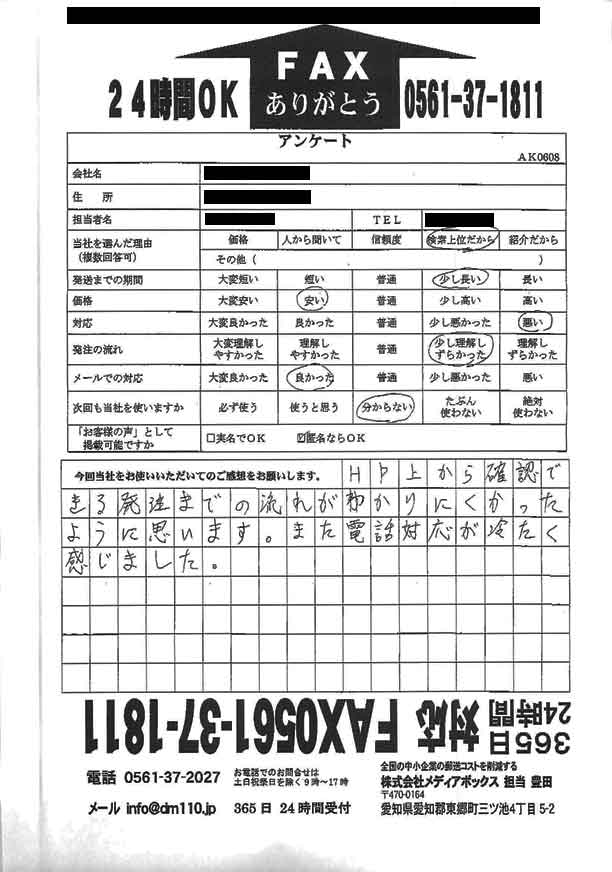 FAX
ありがとう
24時間OK
0561-37-1811
アンケート
AK0608
会社名
住 所
担当者名 TEL
当社を選んだ理由(複数回答可) 価格 人から聞いて 信頼度 検索上位だから 紹介だから
その他( )
発送までの期間 大変短い 短い 普通 少し長い 長い
価格 大変安い 安い 普通 少し高い 高い
対応 大変良かった 良かった 普通 少し悪かった 悪い
発注の流れ 大変理解しやすかった 理解しやすかった 普通 少し理解しずらかった 理解しずらかった
メールでの対応 大変良かった 良かった 普通 少し悪かった 悪い
次回も当社を使いますか 必ず使う 使うと思う 分からない たぶん使わない 絶対使わない
「お客様の声」として掲載可能ですか □実名でOK ☑匿名ならOK
今回当社をお使いいただいてのご感想をお願いします。 HP上から確認で
きる発注までの流れがわかりにくかった
ように思います。また電話対応が冷たく
感じました。
365日24時間対応 FAX0561-37-1811
電話 0561-37-2027
お電話でのお問合せは
土日祝祭日を除く9時～17時
全国の中小企業の郵送コストを削減する
株式会社メディアボックス 担当 豊田
〒470-0164
メール info@dm110.jp 365日 24時間受付
愛知県愛知郡東郷町三ツ池4丁目5-2